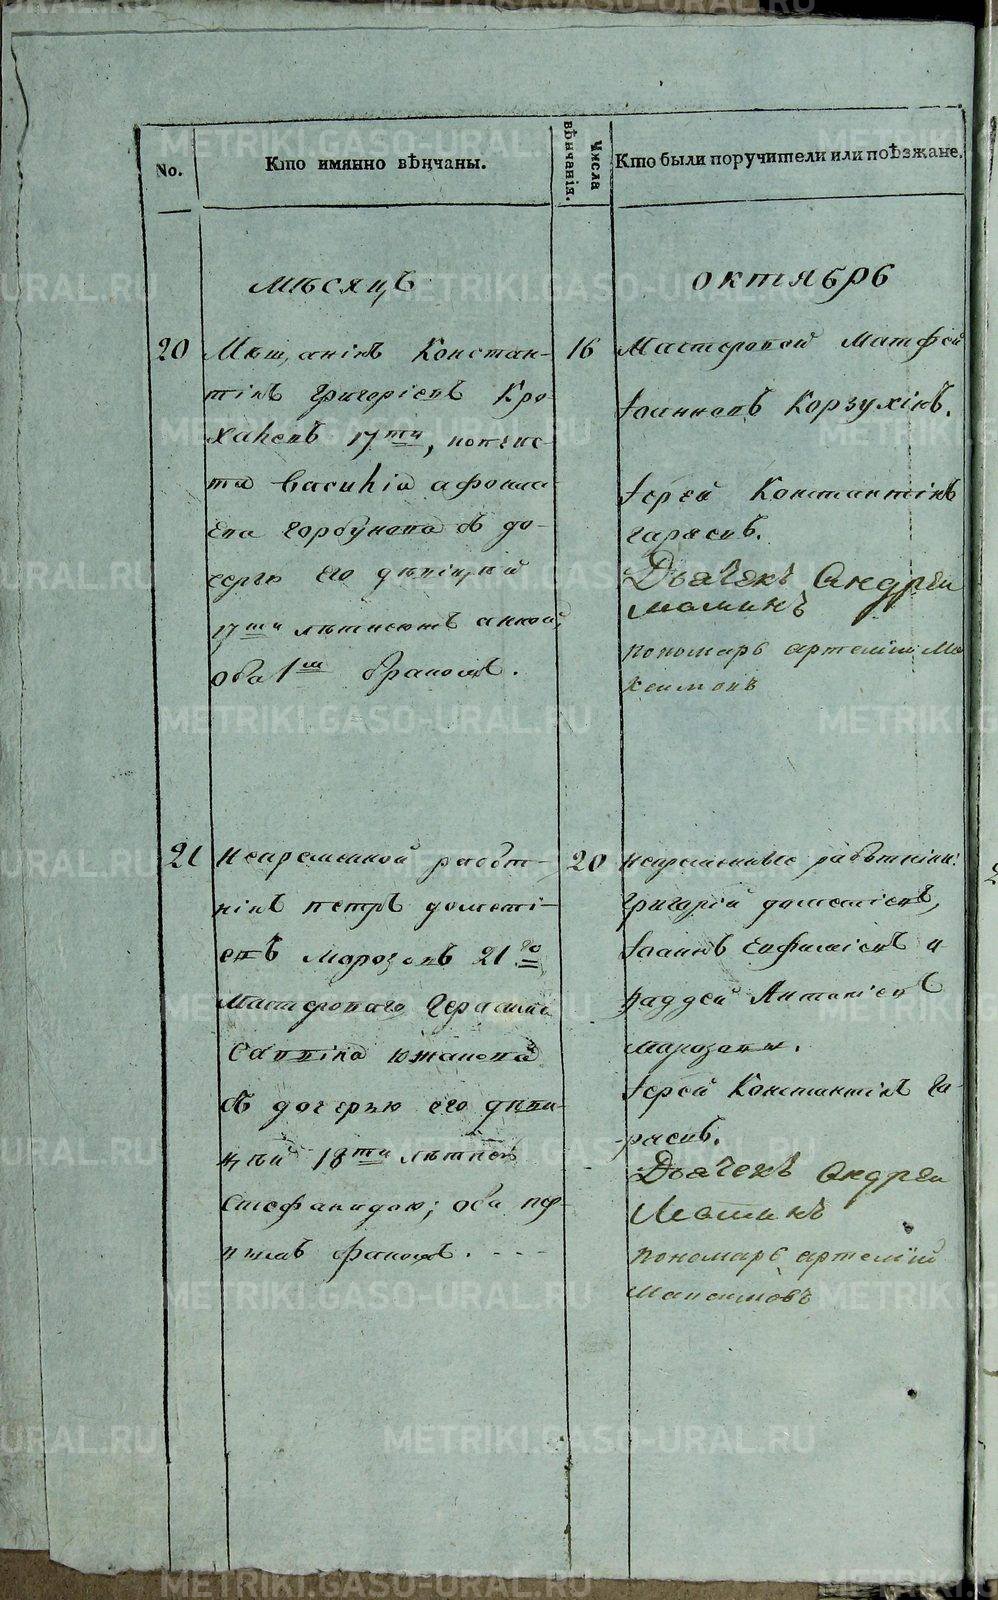 No.
Кто имянно вѣнчаны.
Числа вѣнчанія.
Кто были поручители или поѣзжане.
мѣсяцъ
октябрь
20
Мѣщанінъ Констан-
тінъ Григоріевъ Кро
халевъ 17ти, повѣнс-
та Василія афонас
ева Горбунова съ до-
серію его дѣвіцѣй
17ти лѣтнеютъ анной,
оба 1мъ бракомъ.
16
Мастеровой Матфей
Іоанновъ Корзухінъ.
Іерей Константінъ
гаряевъ.
Дьячекъ Андреи
мамінъ
пономарь артемій Ма
ксимовъ
21
Непременной работ-
нікъ петръ дометі-
евъ Морозовъ 21го
Мастероваго Герасима
Саввіна южакова
съ дочерью его дѣви-
цѣй 18ти лѣтней
Стефанидою; оба пер-
вымъ бракомъ. - - - -
20
непременные работніки:
Григорій дометіевъ,
Іоаннъ Евфиміевъ и
Фаддей Антоніевъ
морозовы.
Іерей Константінъ Га-
ряевъ.
Дьячекъ Андреи
Маминъ
пономарь артемій
Максимовъ
METRIKI.GASO-URAL.RU